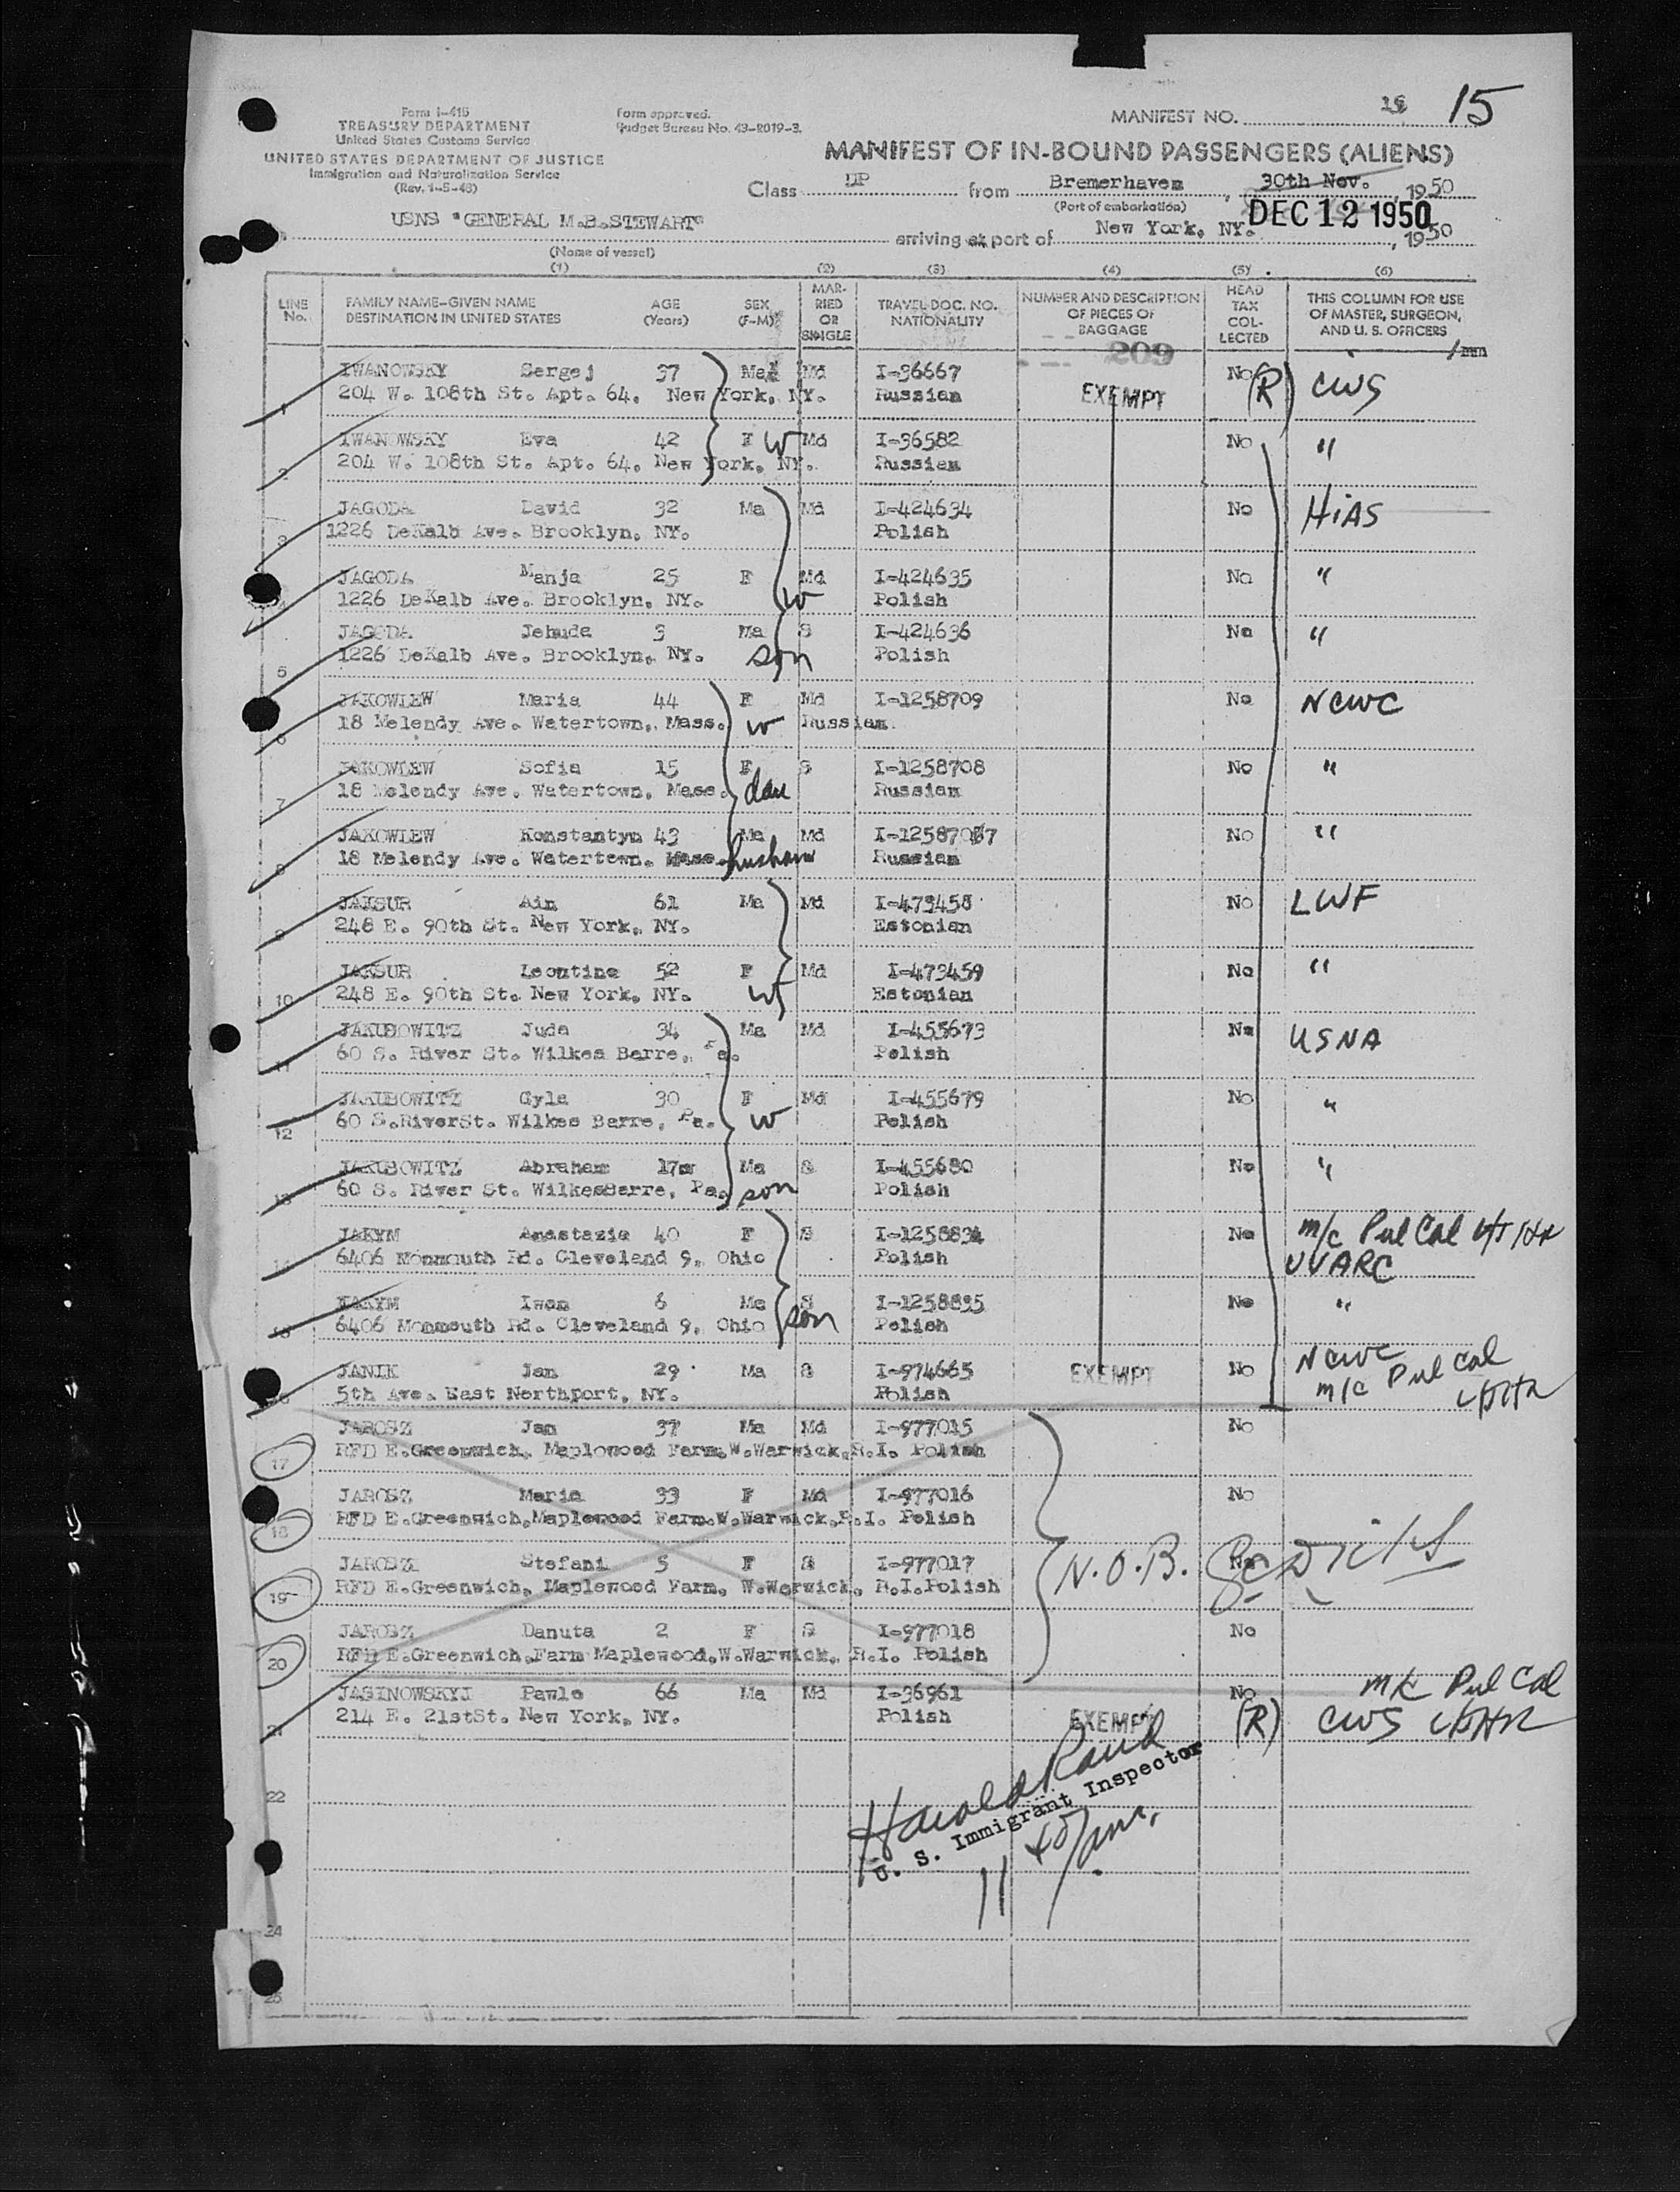 Form I-415
TREASURY DEPARTMENT
United States Customs Service
UNITED STATES DEPARTMENT OF JUSTICE
Immigration and Naturalization Service
(Rev. 1-5-48)
Form approved.
Budget Bureau No. 43-R019-3.
MANIFEST NO. 15 15
MANIFEST OF IN-BOUND PASSENGERS (ALIENS)
Class DP from Bremerhaven, 30th Nov., 1950
(Port of embarkation)
USNS "GENERAL M.B.STEWART" arriving at port of New York, NY. DEC 12 1950, 1950
(Name of vessel)
(1) (2) (3) (4) (5) (6)
LINE No. FAMILY NAME-GIVEN NAME DESTINATION IN UNITED STATES AGE (Years) SEX (F-M) MARRIED OR SINGLE TRAVEL DOC. NO. NATIONALITY NUMBER AND DESCRIPTION OF PIECES OF BAGGAGE HEAD TAX COLLECTED THIS COLUMN FOR USE OF MASTER, SURGEON, AND U. S. OFFICERS
209
IWANOWSKY Sergej 37 Ma Md I-36667 EXEMPT No (R) CWS
1 204 W. 108th St. Apt. 64. New York, NY. Russian
IWANOWSKY Eva 42 F W Md I-36582 No "
2 204 W. 108th St. Apt. 64. New York, NY. Russian
JAGODA David 32 Ma Md I-424634 No HIAS
3 1226 DeKalb Ave. Brooklyn, NY. Polish
JAGODA Manja 25 F Md I-424635 No "
4 1226 DeKalb Ave. Brooklyn, NY. W Polish
JAGODA Jehuda 3 Ma S I-424636 No "
5 1226 DeKalb Ave. Brooklyn, NY. son Polish
JAKOWLEW Maria 44 F Md I-1258709 No NCWC
6 18 Melendy Ave. Watertown, Mass. W Russian
JAKOWLEW Sofia 15 F S I-1258708 No "
7 18 Melendy Ave. Watertown, Mass. dau Russian
JAKOWLEW Konstantyn 43 Ma Md I-1258707 No "
8 18 Melendy Ave. Watertown, Mass. husband Russian
JAKSUR Ain 61 Ma Md I-473458 No LWF
9 248 E. 90th St. New York, NY. Estonian
JAKSUR Leontine 52 F Md I-473459 No "
10 248 E. 90th St. New York, NY. W Estonian
JAKUBOWITZ Juda 34 Ma Md I-455673 No USNA
11 60 S. River St. Wilkes Barre, Pa. Polish
JAKUBOWITZ Gyla 30 F Md I-455679 No "
12 60 S.RiverSt. Wilkes Barre, Pa. W Polish
JAKUBOWITZ Abraham 17m Ma S I-455680 No "
13 60 S. River St. WilkesBarre, Pa. son Polish
JAKYM Anastazia 40 F S I-1258834 No m/c Pul Cal
14 6406 Monmouth Rd. Cleveland 9, Ohio Polish UUARC
JAKYM Iwan 6 Ma S I-1258835 No "
15 6406 Monmouth Rd. Cleveland 9, Ohio son Polish
JANIK Jan 29 Ma S I-974665 EXEMPT No NCWC
16 5th Ave. East Northport, NY. Polish m/c Pul Cal
JAROSZ Jan 37 Ma Md I-977015 No
17 RFD E.Greenwich, Maplewood Farm,W.Warwick,R.I. Polish
JAROSZ Maria 33 F Md I-977016 No
18 RFD E.Greenwich,Maplewood Farm.W.Warwick,R.I. Polish
JAROSZ Stefani 5 F S I-977017 N.O.B. No
19 RFD E.Greenwich, Maplewood Farm, W.Warwick, R.I.Polish
JAROSZ Danuta 2 F S I-977018 No
20 RFD E.Greenwich,Farm Maplewood,W.Warwick, R.I. Polish
JASINOWSKYJ Pawlo 66 Ma Md I-36961 No m/c Pul Cal
21 214 E. 21stSt. New York, NY. Polish EXEMPT (R) CWS
Harold Rand
U. S. Immigrant Inspector
22
24
25